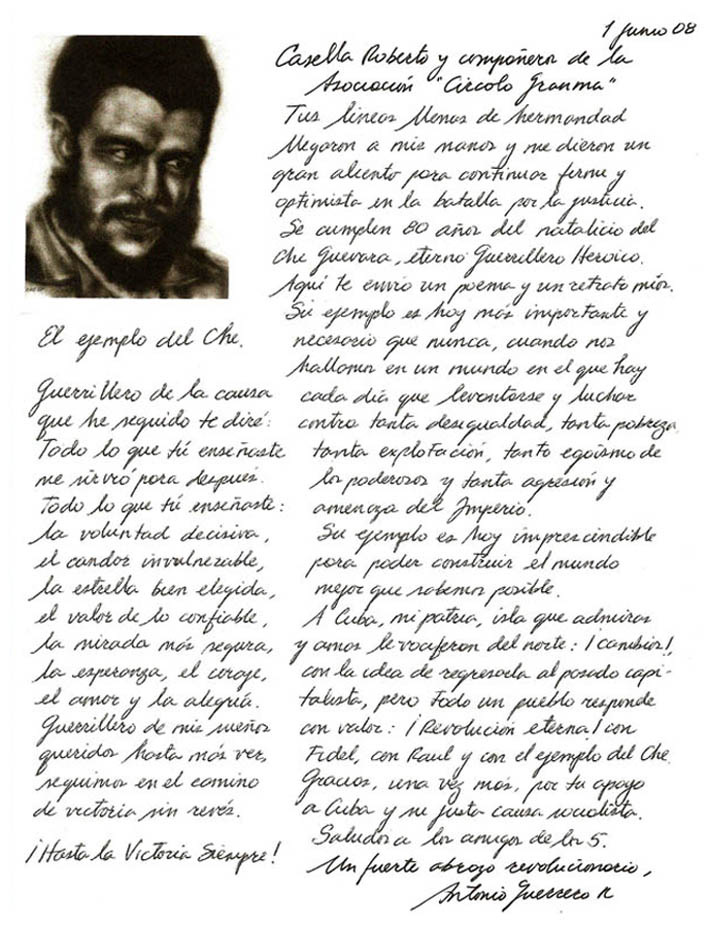 1 junio 08
Casella Roberto y compañeros de la
Asociación "Circolo Granma"
Tus líneas llenas de hermandad
llegaron a mis manos y me dieron un
gran aliento para continuar firme y
optimista en la batalla por la justicia.
Se cumplen 80 años del natalicio del
Che Guevara, eterno Guerrillero Heroico.
Aquí te envío un poema y un retrato míos.
Su ejemplo es hoy más importante y
necesario que nunca, cuando nos
hallamos en un mundo en el que hay
cada día que levantarse y luchar
contra tanta desigualdad, tanta pobreza,
tanta explotación, tanto egoísmo de
los poderosos y tanta agresión y
amenaza del Imperio.
Su ejemplo es hoy imprescindible
para poder construir el mundo
mejor que sabemos posible.
A Cuba, mi patria, isla que admiras
y amas le vociferan del norte: ¡cambios!,
con la idea de regresarla al pasado capi-
talista, pero todo un pueblo responde
con valor: ¡Revolución eterna! con
Fidel, con Raul y con el ejemplo del Che.
Gracias, una vez más, por tu apoyo
a Cuba y su justa causa socialista.
Saludos a los amigos de los 5.
Un fuerte abrazo revolucionario,
Antonio Guerrero R
El ejemplo del Che.
Guerrillero de la causa
que he seguido te diré:
Todo lo que tú enseñaste
me sirvió para después.
Todo lo que tú enseñaste:
la voluntad decisiva,
el candor invulnerable,
la estrella bien elegida,
el valor de lo confiable,
la mirada más segura,
la esperanza, el coraje,
el amor y la alegría.
Guerrillero de mis sueños
queridos hasta más ver,
seguimos en el camino
de victoria sin revés.
¡Hasta la Victoria Siempre!